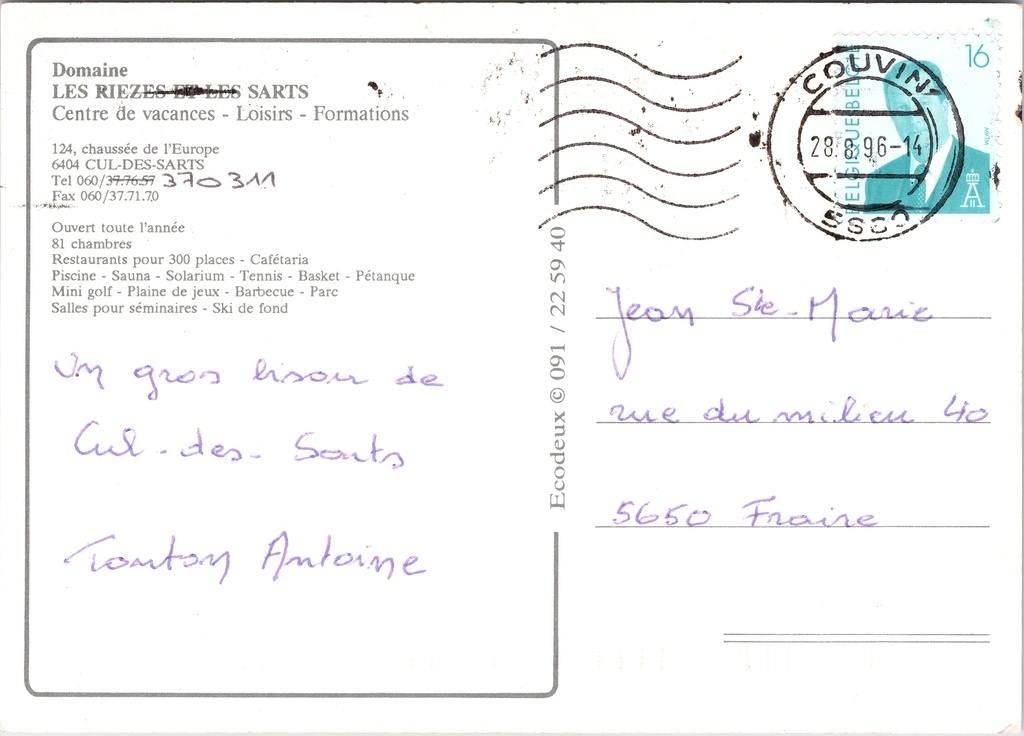 Domaine
LES RIEZES ET LES SARTS
Centre de vacances - Loisirs - Formations
124, chaussée de l'Europe
6404 CUL-DES-SARTS
Tel 060/37.76.57 370311
Fax 060/37.71.70
Ouvert toute l'année
81 chambres
Restaurants pour 300 places - Cafétaria
Piscine - Sauna - Solarium - Tennis - Basket - Pétanque
Mini golf - Plaine de jeux - Barbecue - Parc
Salles pour séminaires - Ski de fond
Un gros bisou de
Cul-des-Sarts
Tonton Antoine
Ecodeux © 091 / 22 59 40
COUVIN
28.8.96-14
BELGIQUE BELGIE
16
Jean Ste-Marie
rue du milieu 40
5650 Fraire